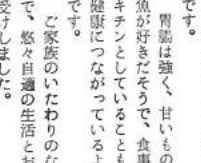 です。
　胃腸は強く、甘いもの
魚が好きだそうで、食事
キチンとしていることも
健康につながっているよ
です。
　ご家族のいたわりのな
で、悠々自適の生活とお
受けしました。